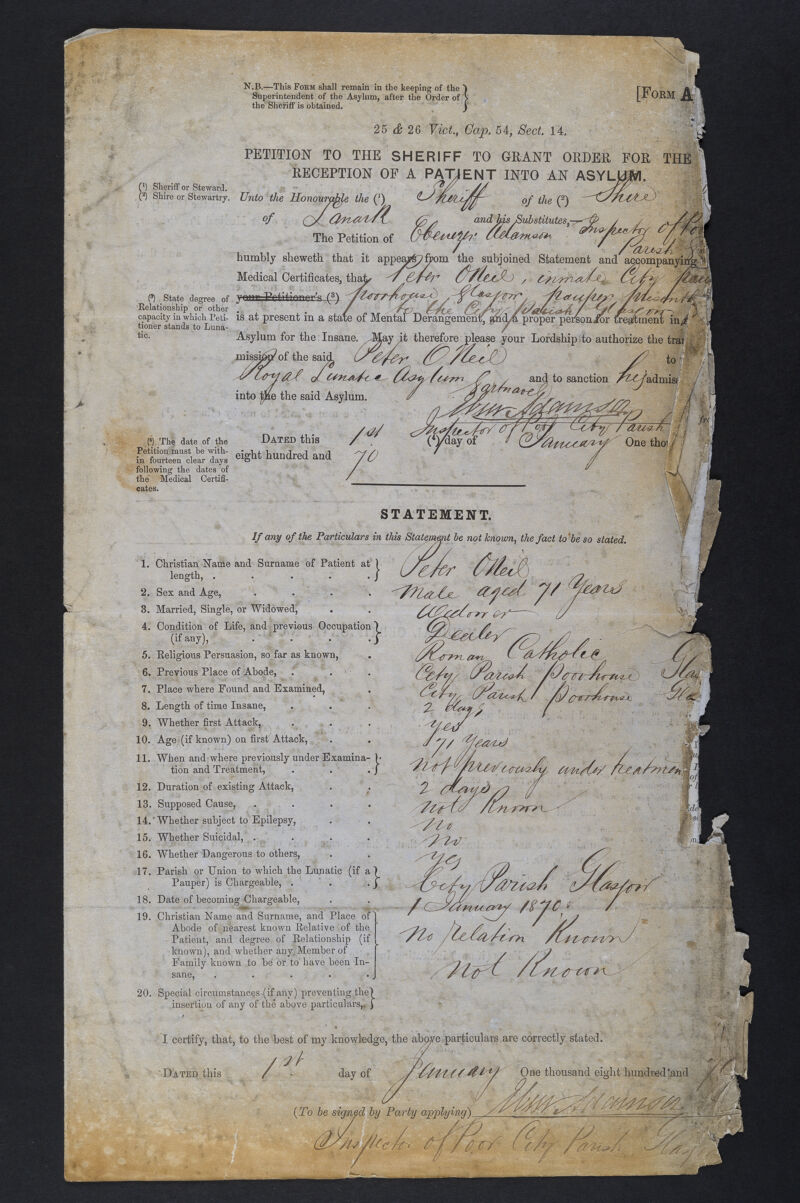 N.B.—This Form shall remain in the keeping of the
Superintendent of the Asylum, after the Order of
the Sheriff is obtained.
[Form A
25 & 26 Vict., Cap. 54, Sect. 14.
PETITION TO THE SHERIFF TO GRANT ORDER FOR THE
RECEPTION OF A PATIENT INTO AN ASYLUM.
(¹) Sheriff or Steward.
(²) Shire or Stewartry.
Unto the Honourable the (¹) Sheriff of the (²) Shire
of Lanark and his Substitutes,—
The Petition of Ebenezer Adamson Inspector of Poor
Parish
humbly sheweth that it appears from the subjoined Statement and accompanying
Medical Certificates, that Peter O'Neil, inmate City
(³) State degree of
Relationship or other
capacity in which Peti-
tioner stands to Luna-
tic.
your Petitioner's (³) poorhouse, Glasgow, pauper,
to the City Parish Glasgow
is at present in a state of Mental Derangement, and a proper person for treatment in
Asylum for the Insane. May it therefore please your Lordship to authorize the tra
mission of the said Peter O'Neil to
Royal Lunatic Asylum Gartnavel and to sanction his admis
into the the said Asylum.
Adamson
Inspector of Poor City Parish
(⁴) The date of the
Petition must be with-
in fourteen clear days
following the dates of
the Medical Certifi-
cates.
Dated this 1st (⁴) day of January One tho
eight hundred and 70
STATEMENT.
If any of the Particulars in this Statement be not known, the fact to be so stated.
1. Christian Name and Surname of Patient at length, . Peter O'Neil
2. Sex and Age, Male aged 71 Years
3. Married, Single, or Widowed, Widower
4. Condition of Life, and previous Occupation (if any), Dealer
5. Religious Persuasion, so far as known, Roman Catholic
6. Previous Place of Abode, City Parish Poorhouse Glas
7. Place where Found and Examined, City Parish Poorhouse Gla
8. Length of time Insane, 2 days
9. Whether first Attack, Yes
10. Age (if known) on first Attack, 71 Years
11. When and where previously under Examina-
tion and Treatment, Not previously under treatmen
12. Duration of existing Attack, 2 days
13. Supposed Cause, Not Known
14. Whether subject to Epilepsy, No
15. Whether Suicidal, No
16. Whether Dangerous to others, Yes
17. Parish or Union to which the Lunatic (if a
Pauper) is Chargeable, City Parish Glasgow
18. Date of becoming Chargeable, 1 January 1870
19. Christian Name and Surname, and Place of
Abode of nearest known Relative of the
Patient, and degree of Relationship (if
known), and whether any Member of
Family known to be or to have been In-
sane, No relation Known
Not Known
20. Special circumstances (if any) preventing the
insertion of any of the above particulars,
I certify, that, to the best of my knowledge, the above particulars are correctly stated.
Dated this 1st day of January One thousand eight hundred and 70
(To be signed by Party applying) Adamson
Inspector of Poor City Parish Glas